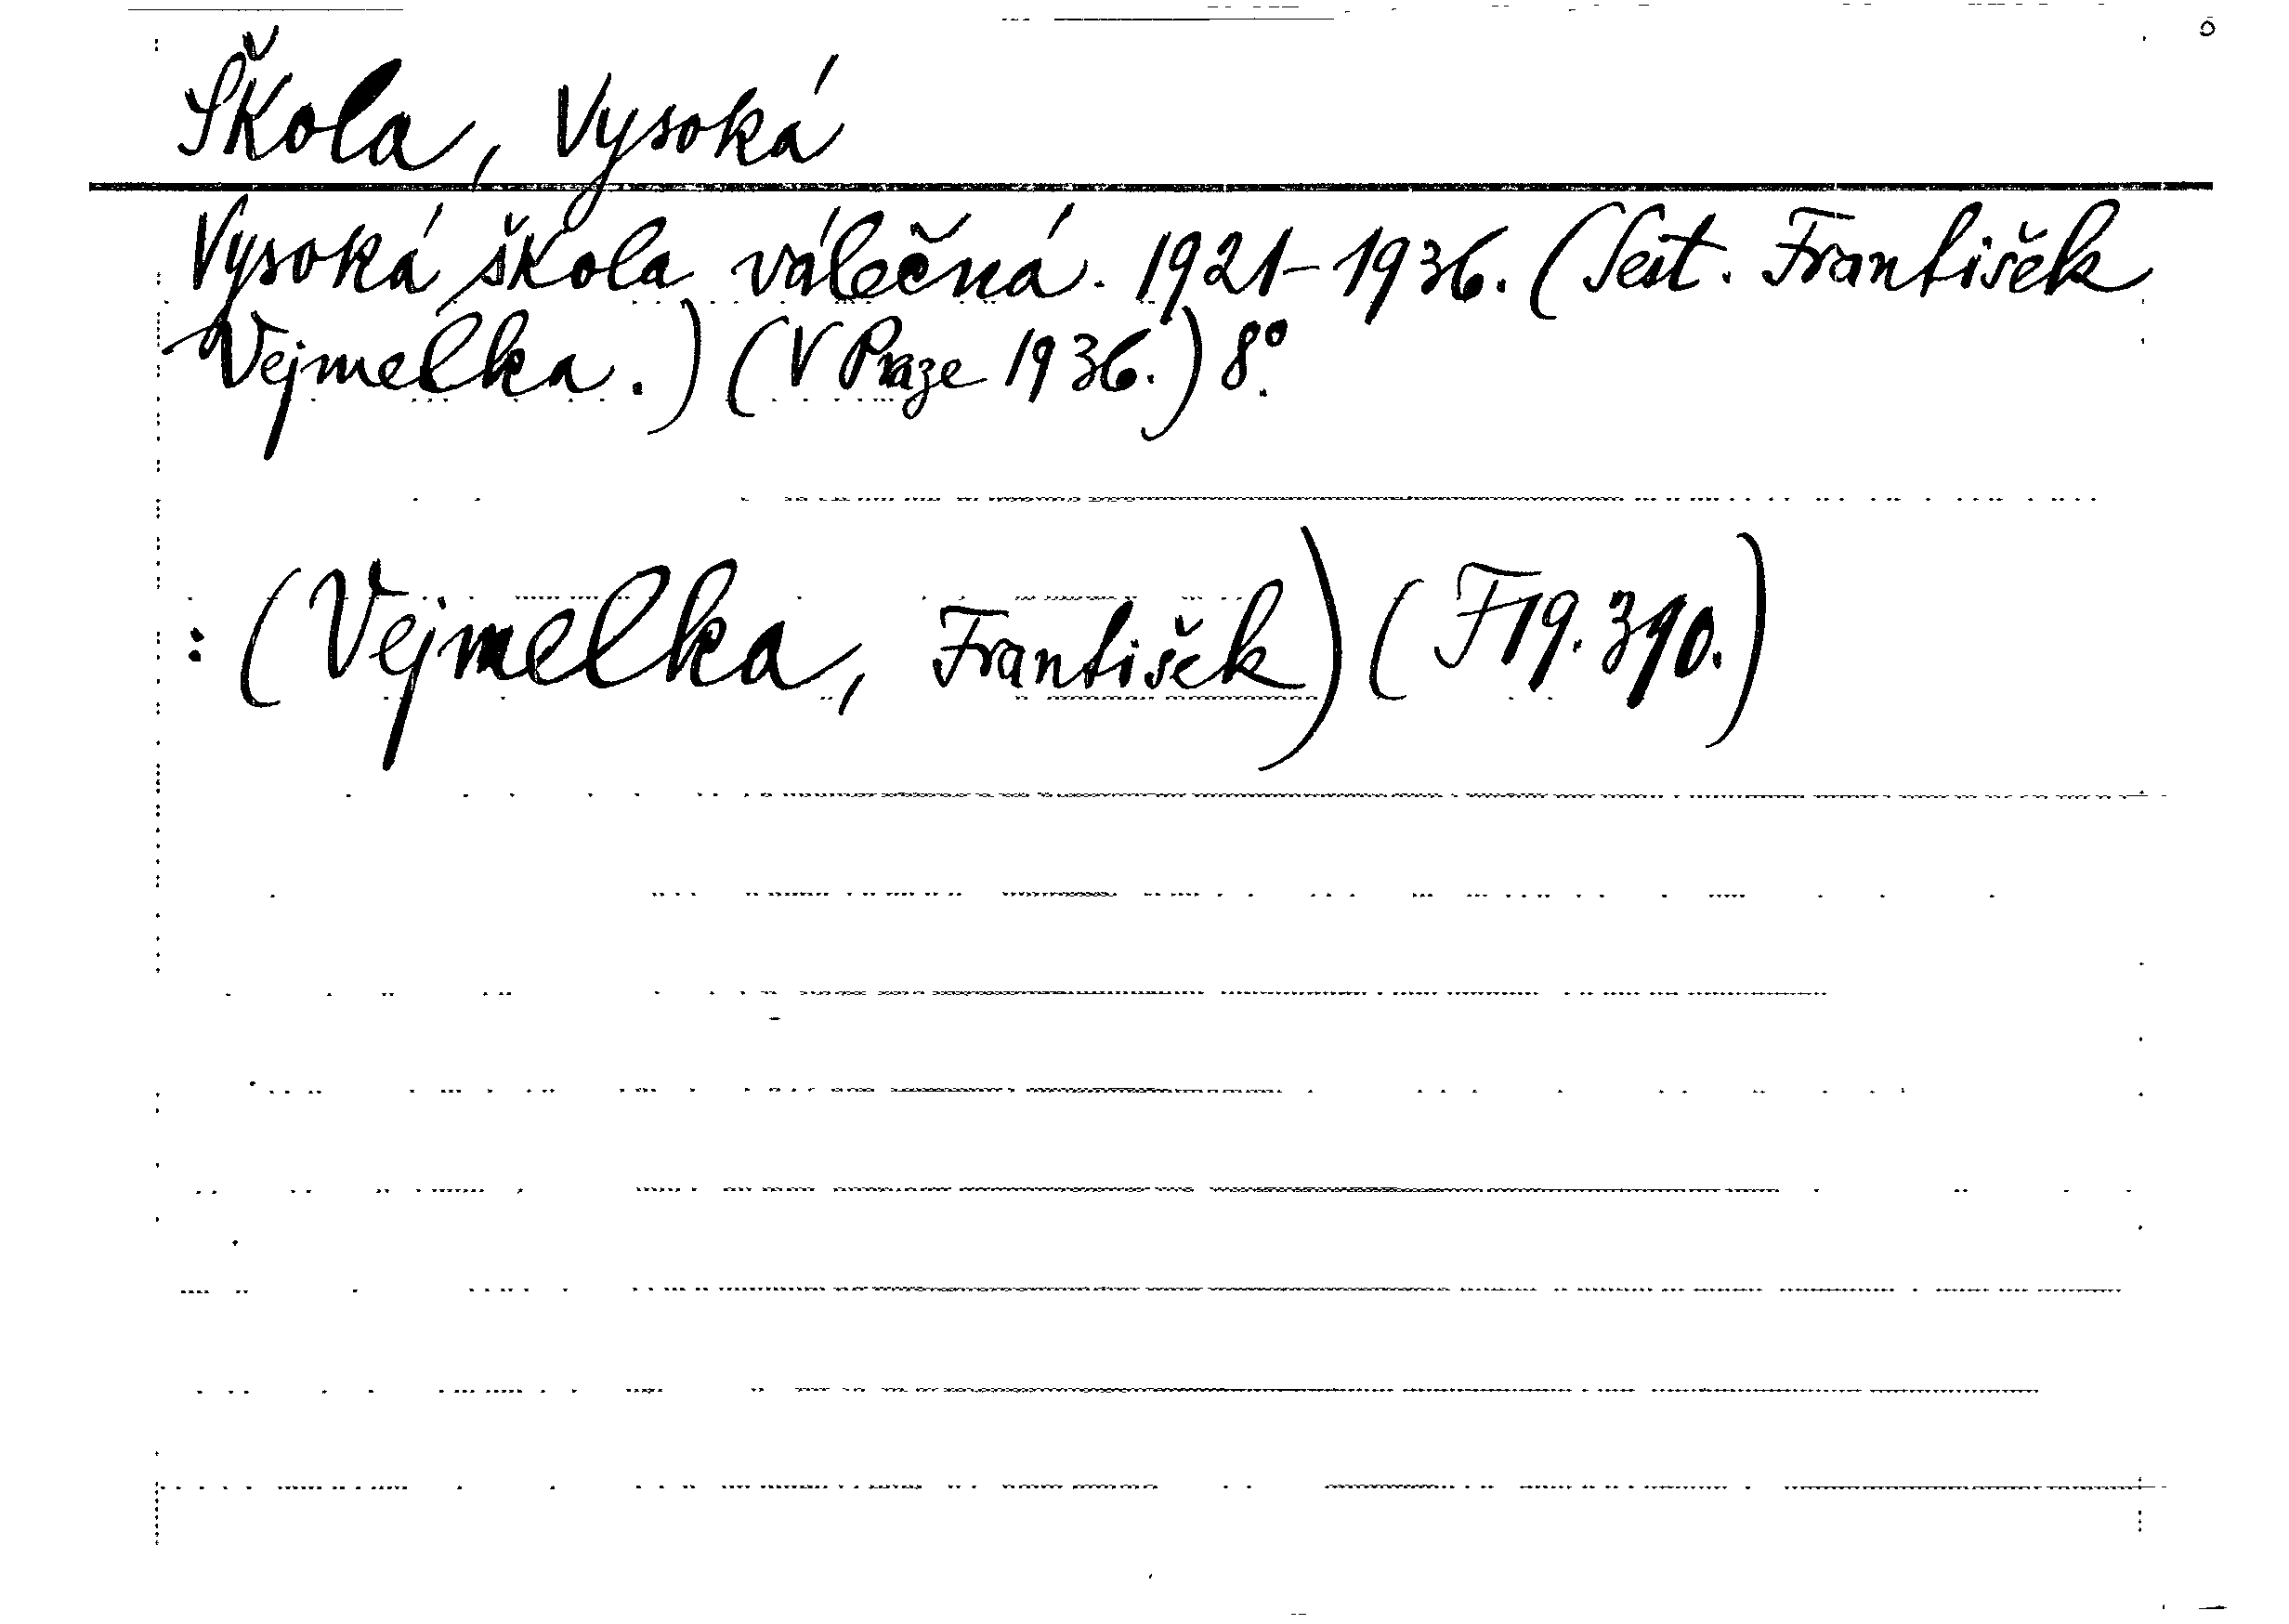 Škola, Vysoká
Vysoká škola válečná. 1921-1936. (Sest. František
Vejmelka.) (V Praze 1936.) 8°.
: (Vejmelka, František) (F19.390.)